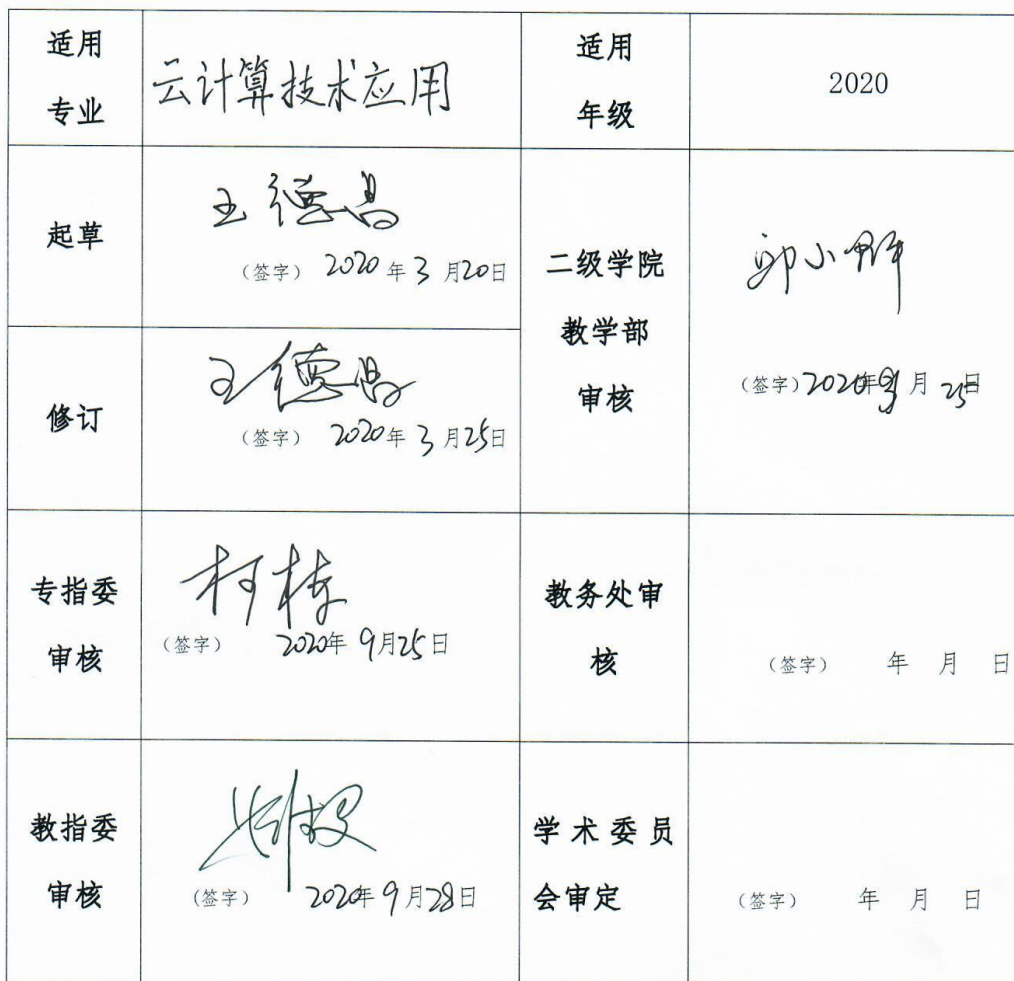 适用
专业
云计算技术应用
适用
年级
2020
起草
王德昌
(签字) 2020年3月20日
二级学院
教学部
审核
(签字) 2020年 月25日
修订
王德昌
(签字) 2020年3月25日
专指委
审核
柯栋
(签字) 2020年9月25日
教务处审
核
(签字) 年 月 日
教指委
审核
(签字) 2020年9月28日
学术委员
会审定
(签字) 年 月 日